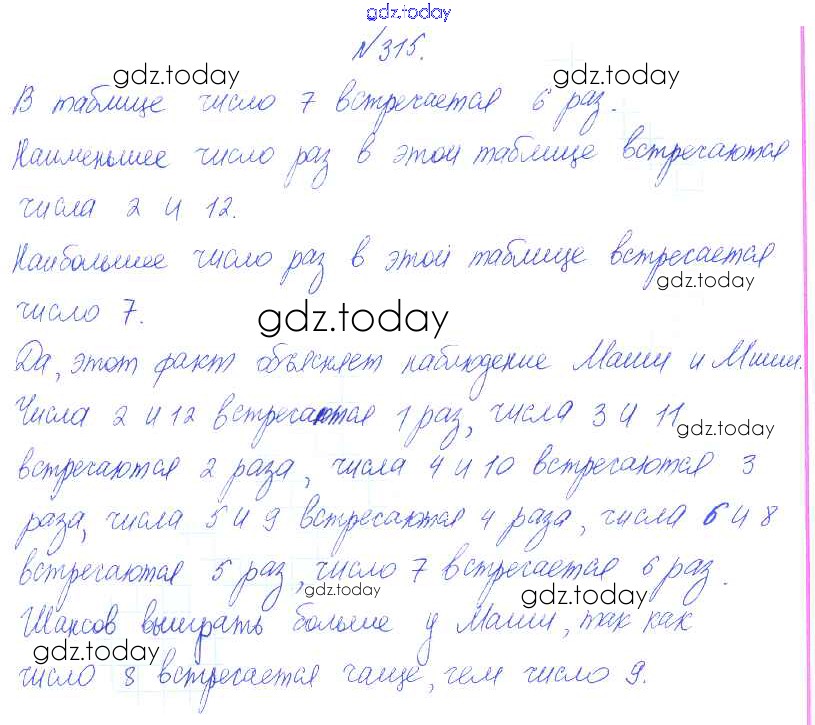 gdz.today
№315.
gdz.today gdz.today
В таблице число 7 встречается 6 раз.
Наименьшее число раз в этой таблице встречаются
числа 2 и 12.
Наибольшее число раз в этой таблице встречается
gdz.today
число 7.
gdz.today
Да, этот факт объясняет наблюдение Маши и Миши.
Числа 2 и 12 встречаются 1 раз, числа 3 и 11
gdz.today
встречаются 2 раза, числа 4 и 10 встречаются 3
раза, числа 5 и 9 встречаются 4 раза, числа 6 и 8
встречаются 5 раз, число 7 встречается 6 раз.
gdz.today gdz.today
Шансов выиграть больше у Маши, так как
gdz.today
число 8 встречается чаще, чем число 9.